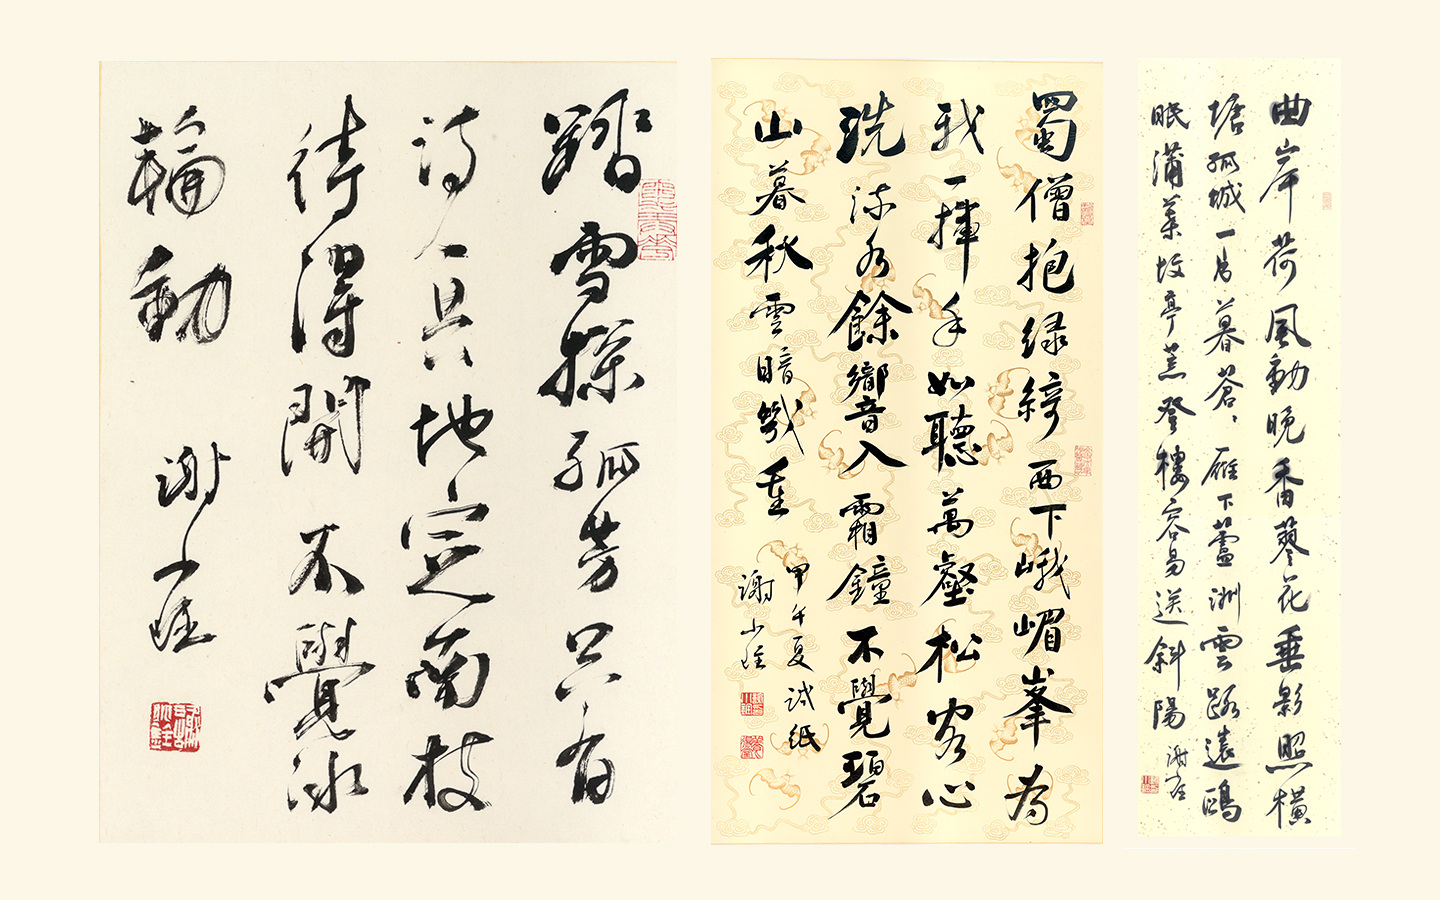 踏雪探孤芳只有
詩人共地定南枝
待得開不覺冰
輪動
謝小銓
蜀僧抱綠綺西下峨嵋峯為
我一揮手如聽萬壑松客心
洗流水餘響入霜鐘不覺碧
山暮秋雲暗幾重
甲午夏試紙
謝小銓
曲岸荷風動晚香蓼花垂影照橫
塘孤城一片暮蒼〻雁下蘆洲雲路遠鷗
眠蒲葉亭荒登樓容易送斜陽
謝小銓